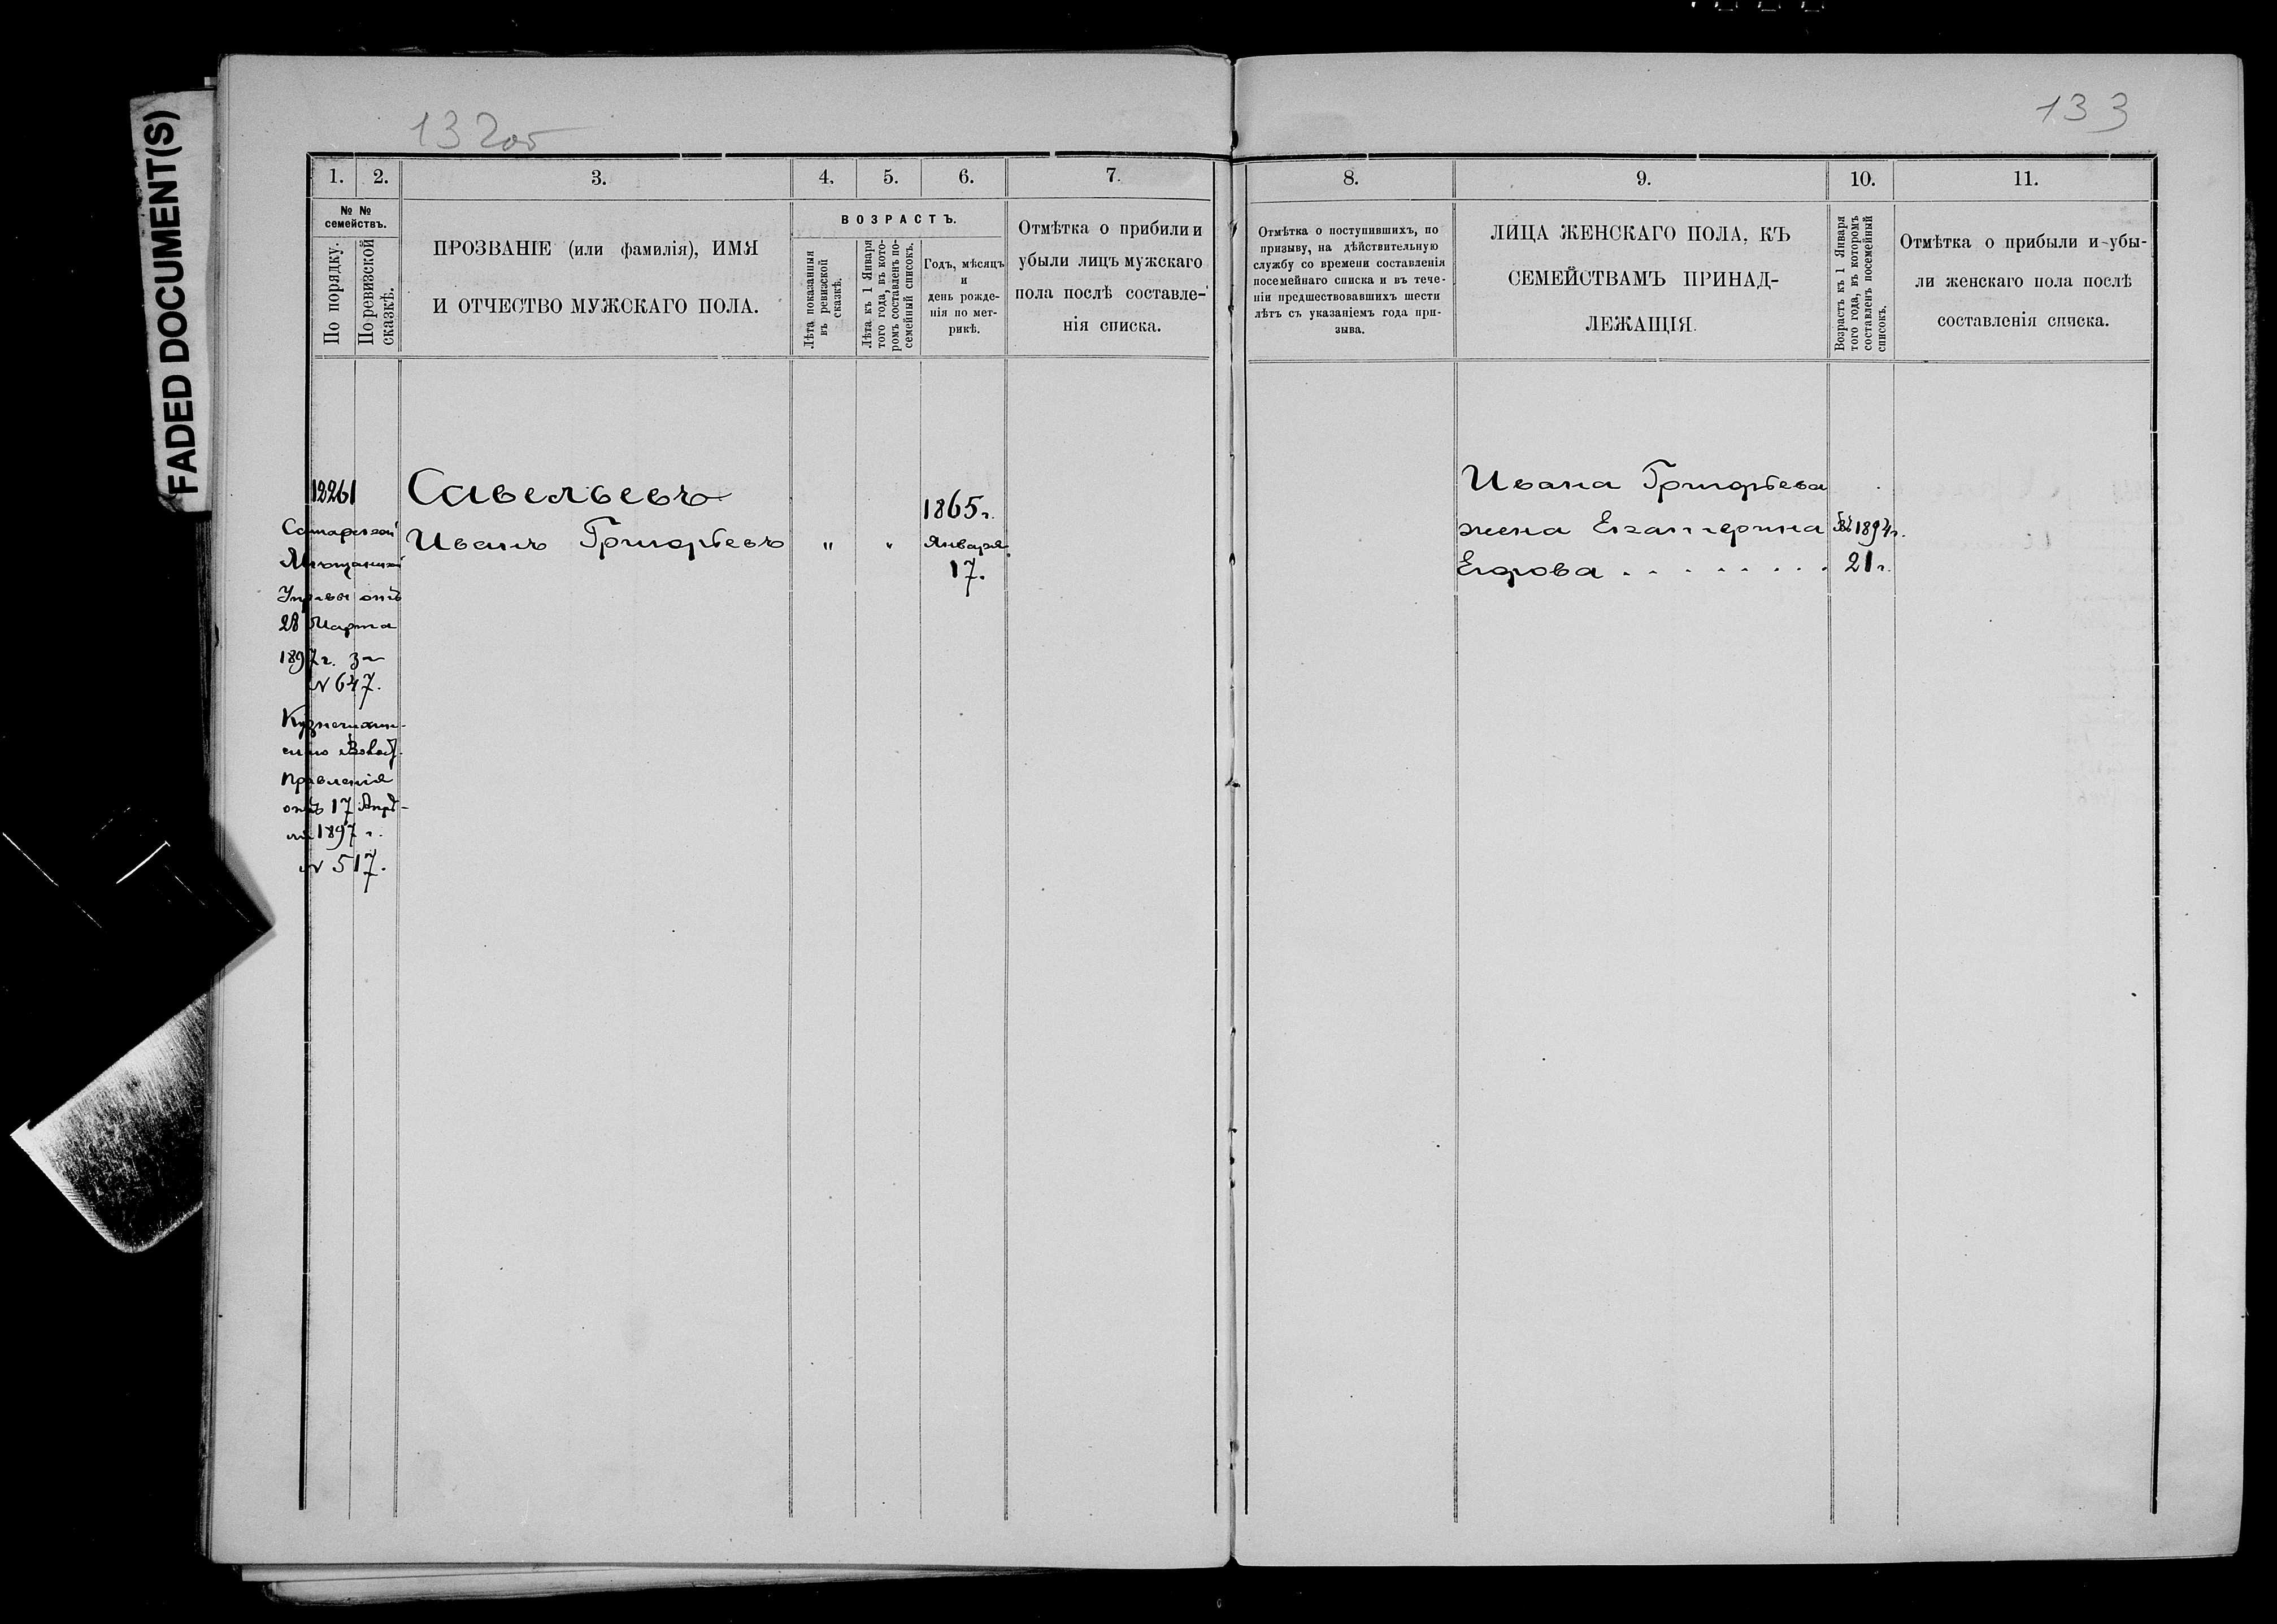 FADED DOCUMENT(S)
132об
133
1.
2.
3.
4.
5.
6.
7.
№ №
семействъ.
По порядку.
По ревизской
сказкѣ.
ПРОЗВАНІЕ (или фамилія), ИМЯ
И ОТЧЕСТВО МУЖСКАГО ПОЛА.
ВОЗРАСТЪ.
Лѣта показанныя
въ ревизской
сказкѣ.
Лѣта къ 1 Января
того года, въ кото-
ромъ составленъ по-
семейный списокъ.
Годъ, мѣсяцъ
и
день рожде-
нія по мет-
рикѣ.
Отмѣтка о прибыли и
убыли лицъ мужскаго
пола послѣ составле-
нія списка.
12261
Самарской
Мѣщанской
Управы отъ
28 Марта
1897 г. за
№ 647.
отъ 17 Апрѣ-
ля 1897 г.
№ 517.
Савельевъ
Иванъ Григорьевъ " "
1865 г.
Января
17.
8.
9.
10.
11.
Отмѣтка о поступившихъ, по
призыву, на дѣйствительную
службу со времени составленія
посемейнаго списка и въ тече-
ніи предшествовавшихъ шести
лѣтъ съ указаніемъ года при-
зыва.
ЛИЦА ЖЕНСКАГО ПОЛА, КЪ
СЕМЕЙСТВАМЪ ПРИНАД-
ЛЕЖАЩІЯ.
Возрастъ къ 1 Января
того года, въ которомъ
составленъ посемейный
списокъ.
Отмѣтка о прибыли и убы-
ли женскаго пола послѣ
составленія списка.
Ивана Григорьева
жена Екатерина Въ 1894 г.
Егорова . . . . . . . . 21 г.